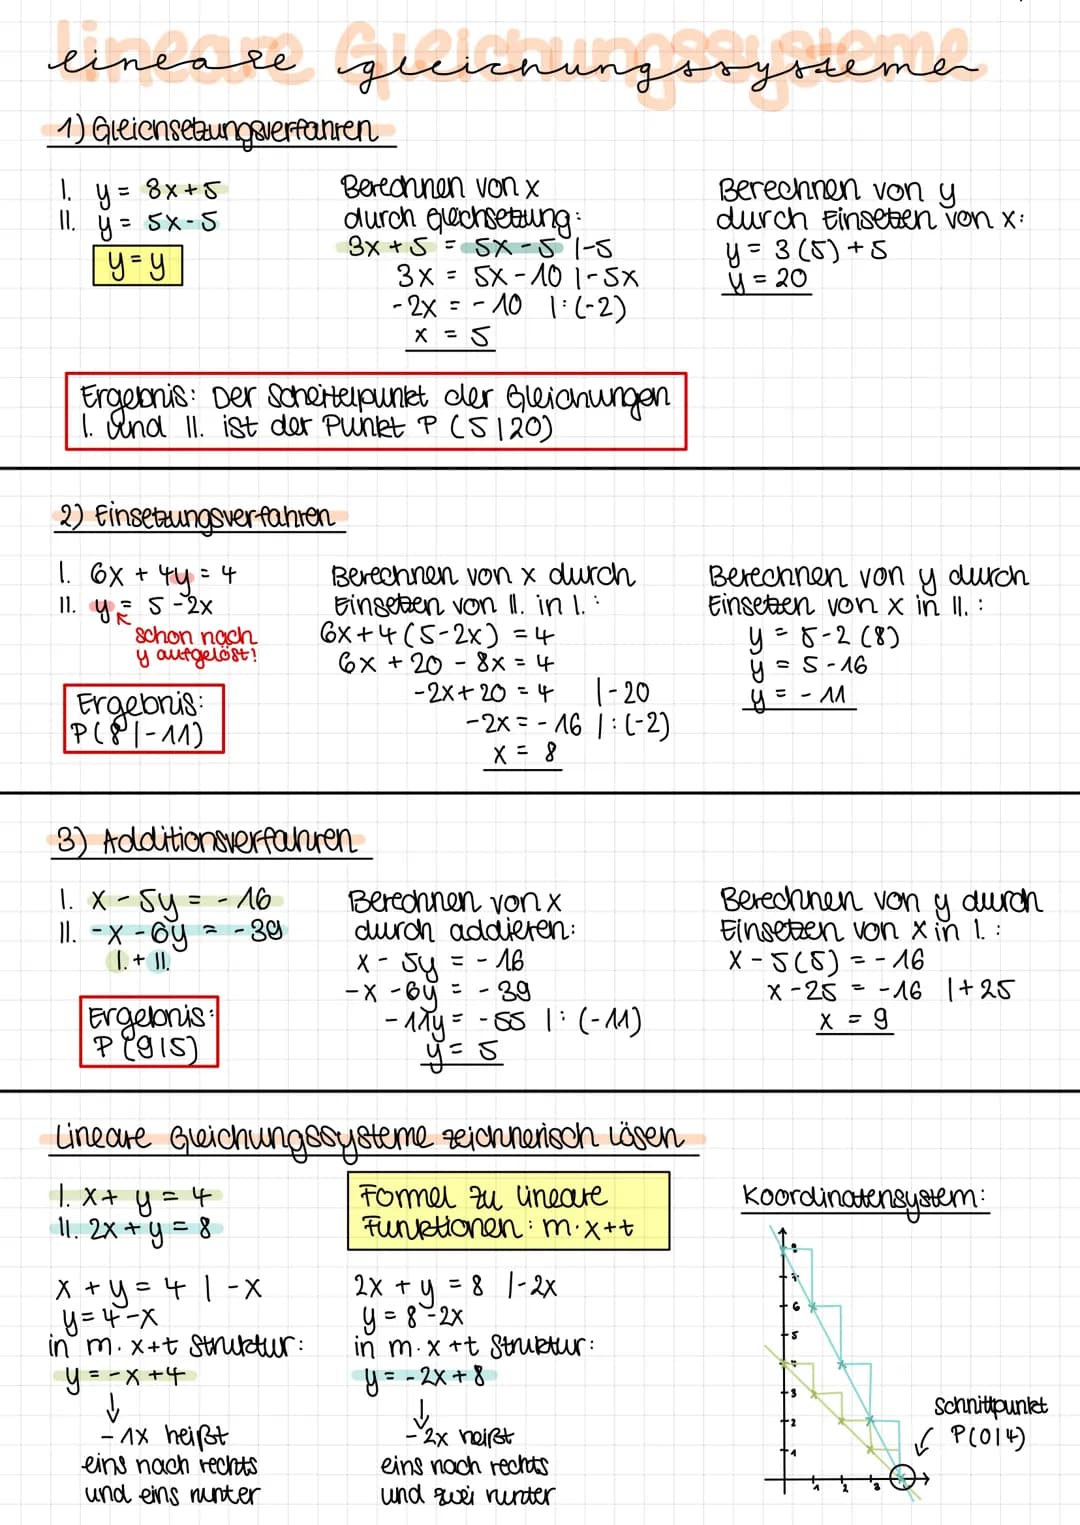 lineare Gleichungssysteme
lineare gleichungssysteme
1) Gleichsetzungsverfahren
I. y = 8x+5
II. y = 5x-5
y=y
Berechnen von x
durch Gleichsetzung:
3x+5 = 5x-5 |-5
3x = 5x-10 |-5x
-2x = -10 |:(-2)
x = 5
Berechnen von y
durch Einsetzen von x:
y = 3(5)+5
y = 20
Ergebnis: Der Scheitelpunkt der Gleichungen
I. und II. ist der Punkt P (5|20)
2) Einsetzungsverfahren
I. 6x + 4y = 4
II. y = 5-2x
schon nach
y aufgelöst!
Ergebnis:
P(8|-11)
Berechnen von x durch
Einsetzen von II. in I.:
6x+4(5-2x) = 4
6x+20-8x=4
-2x+20=4 |-20
-2x=-16 |:(-2)
x = 8
Berechnen von y durch
Einsetzen von x in II.:
y = 5-2(8)
y = 5-16
y = -11
3) Additionsverfahren
I. x-5y = -16
II. -x-6y = -39
I. + II.
Ergebnis:
P (9|5)
Berechnen von x
durch addieren:
x - 5y = -16
-x -6y = -39
-11y = -55 |:(-11)
y = 5
Berechnen von y durch
Einsetzen von x in I.:
x-5(5) = -16
x-25 = -16 |+25
x = 9
Lineare Gleichungssysteme zeichnerisch lösen
I. x+ y = 4
II. 2x+y = 8
Formel zu lineare
Funktionen: m·x+t
x+y=4 |-x
y=4-x
in m·x+t Struktur:
y=-x+4
↓
-1x heißt
eins nach rechts
und eins runter
2x+y=8 |-2x
y=8-2x
in m·x+t Struktur:
y=-2x+8
↓
-2x heißt
eins nach rechts
und zwei runter
Koordinatensystem:
8
7
6
5
4
3
2
1
1 2 3
Schnittpunkt
P(0|4)